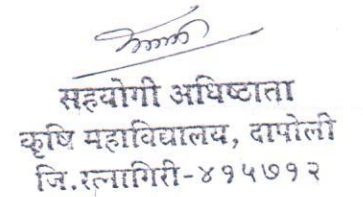 सहयोगी अधिष्टाता
कृषि महाविद्यालय, दापोली
जि.रत्नागिरी-४१५७१२